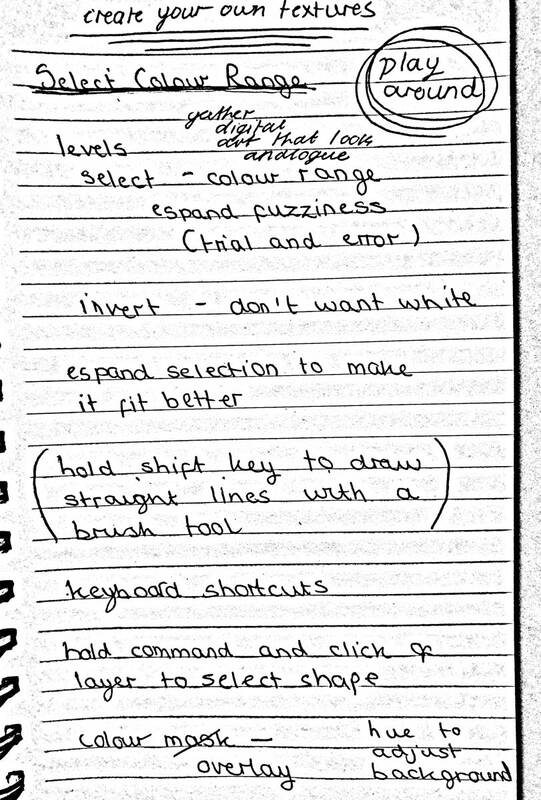 create your own textures
Select Colour Range
play
around
gather
digital
art that look
analogue
levels
select - colour range
espand fuzziness
(trial and error)
invert - don't want white
espand selection to make
it fit better
(hold shift key to draw
straight lines with a
brush tool)
keyboard shortcuts
hold command and click
layer to select shape
colour mask -
overlay
hue to
adjust
background